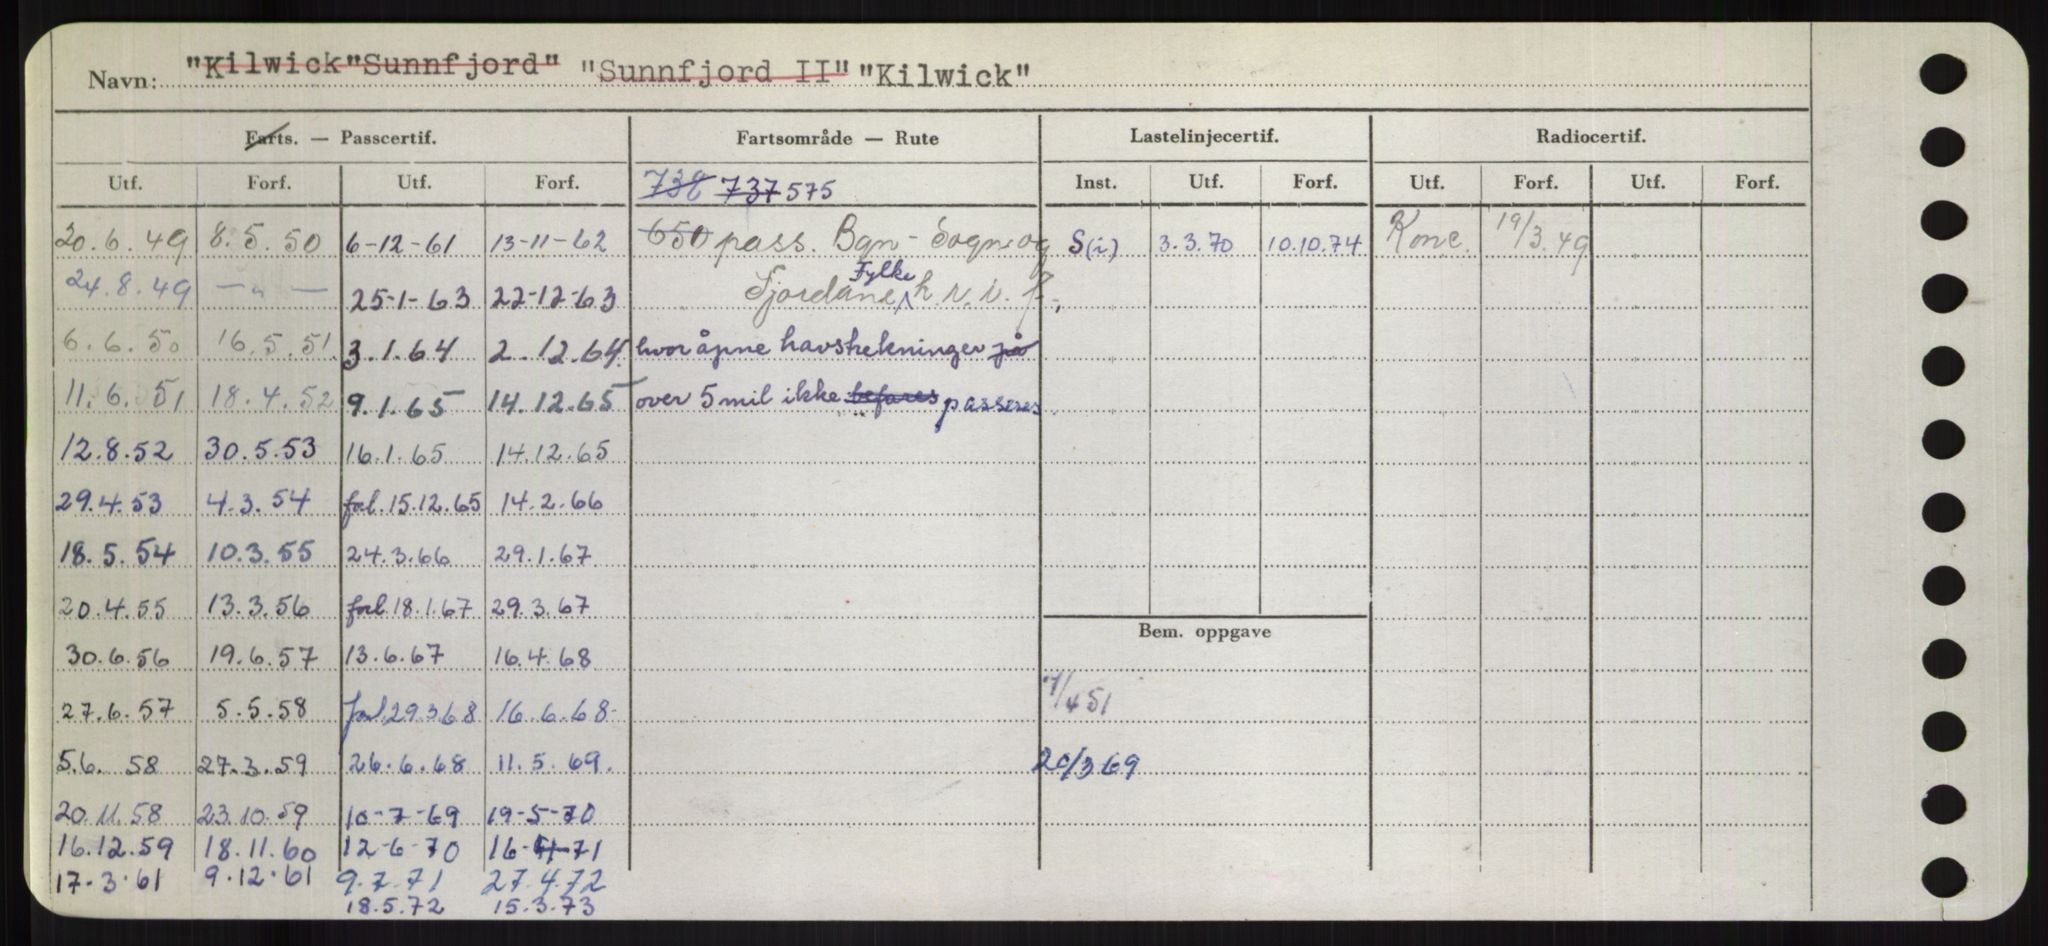 Navn: "Kilwick" "Sunnfjord" "Sunnfjord II" "Kilwick"
Farts. — Passcertif. Fartsområde — Rute Lastelinjecertif. Radiocertif.
Utf. Forf. Utf. Forf. 738 737 575 Inst. Utf. Forf. Utf. Forf. Utf. Forf.
20.6.49 8.5.50 6-12-61 13-11-62 650 pass. Bgn - Sogn og S(i) 3.3.70 10.10.74 Konc. 19/3.49
24.8.49 — " — 25-1-63 22-12-63 Fjordane Fylke h.r.i.f.,
6.6.50 16.5.51. 3.1.64 2.12.64. hvor åpne havstrekninger på
11.6.51 18.4.52 9.1.65 14.12.65 over 5 mil ikke befares passeres
12.8.52 30.5.53 16.1.65 14.12.65
29.4.53 4.3.54 forl. 15.12.65 14.2.66
18.5.54 10.3.55 24.3.66 29.1.67
20.4.55 13.3.56 forl. 18.1.67 29.3.67
Bem. oppgave
30.6.56 19.6.57 13.6.67 16.4.68
27.6.57 5.5.58 forl. 29.3.68 16.6.68 /4 51
5.6. 58 27.3.59 26.6.68 11.5.69. 20/3 69
20.11.58 23.10.59 10-7-69 19-5-70
16.12.59 18.11.60 12-6-70 16-4-71
17.3.61 9.12.61 9.7.71 27.4.72
18.5.72 15.3.73